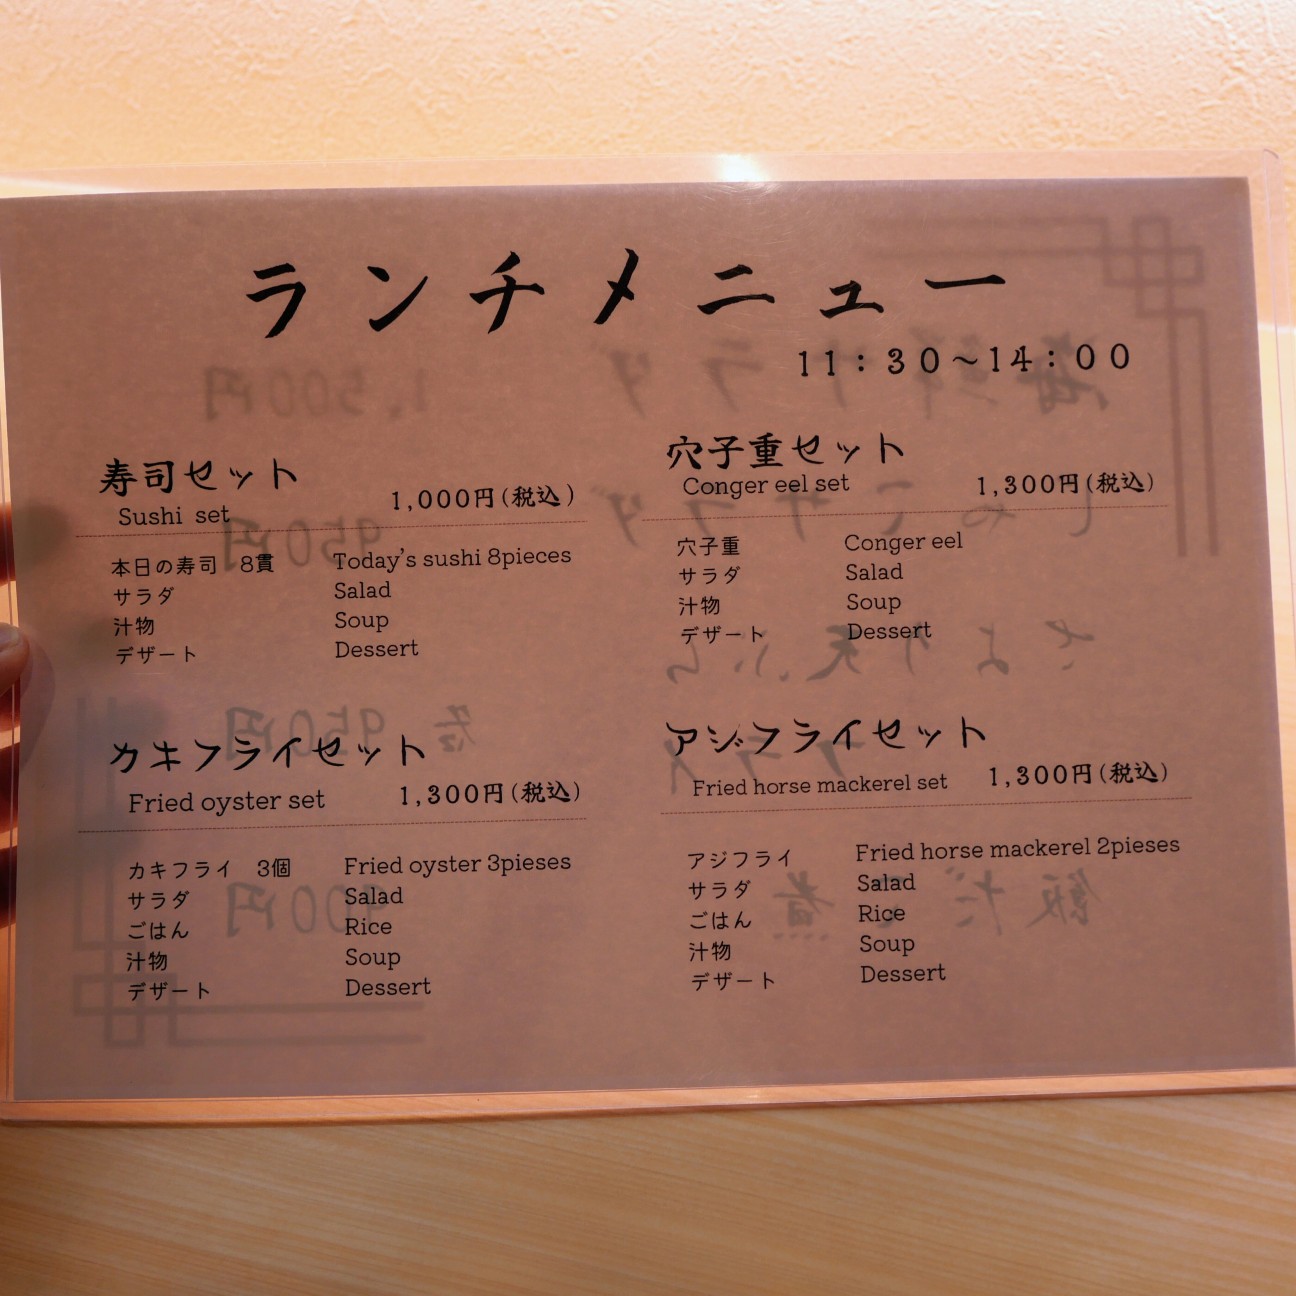 ランチメニュー
11：30～14：00
寿司セット
Sushi set
1,000円(税込)
本日の寿司 8貫 Today's sushi 8pieces
サラダ Salad
汁物 Soup
デザート Dessert
穴子重セット
Conger eel set
1,300円(税込)
穴子重 Conger eel
サラダ Salad
汁物 Soup
デザート Dessert
カキフライセット
Fried oyster set
1,300円(税込)
カキフライ 3個 Fried oyster 3pieses
サラダ Salad
ごはん Rice
汁物 Soup
デザート Dessert
アジフライセット
Fried horse mackerel set
1,300円(税込)
アジフライ Fried horse mackerel 2pieses
サラダ Salad
ごはん Rice
汁物 Soup
デザート Dessert